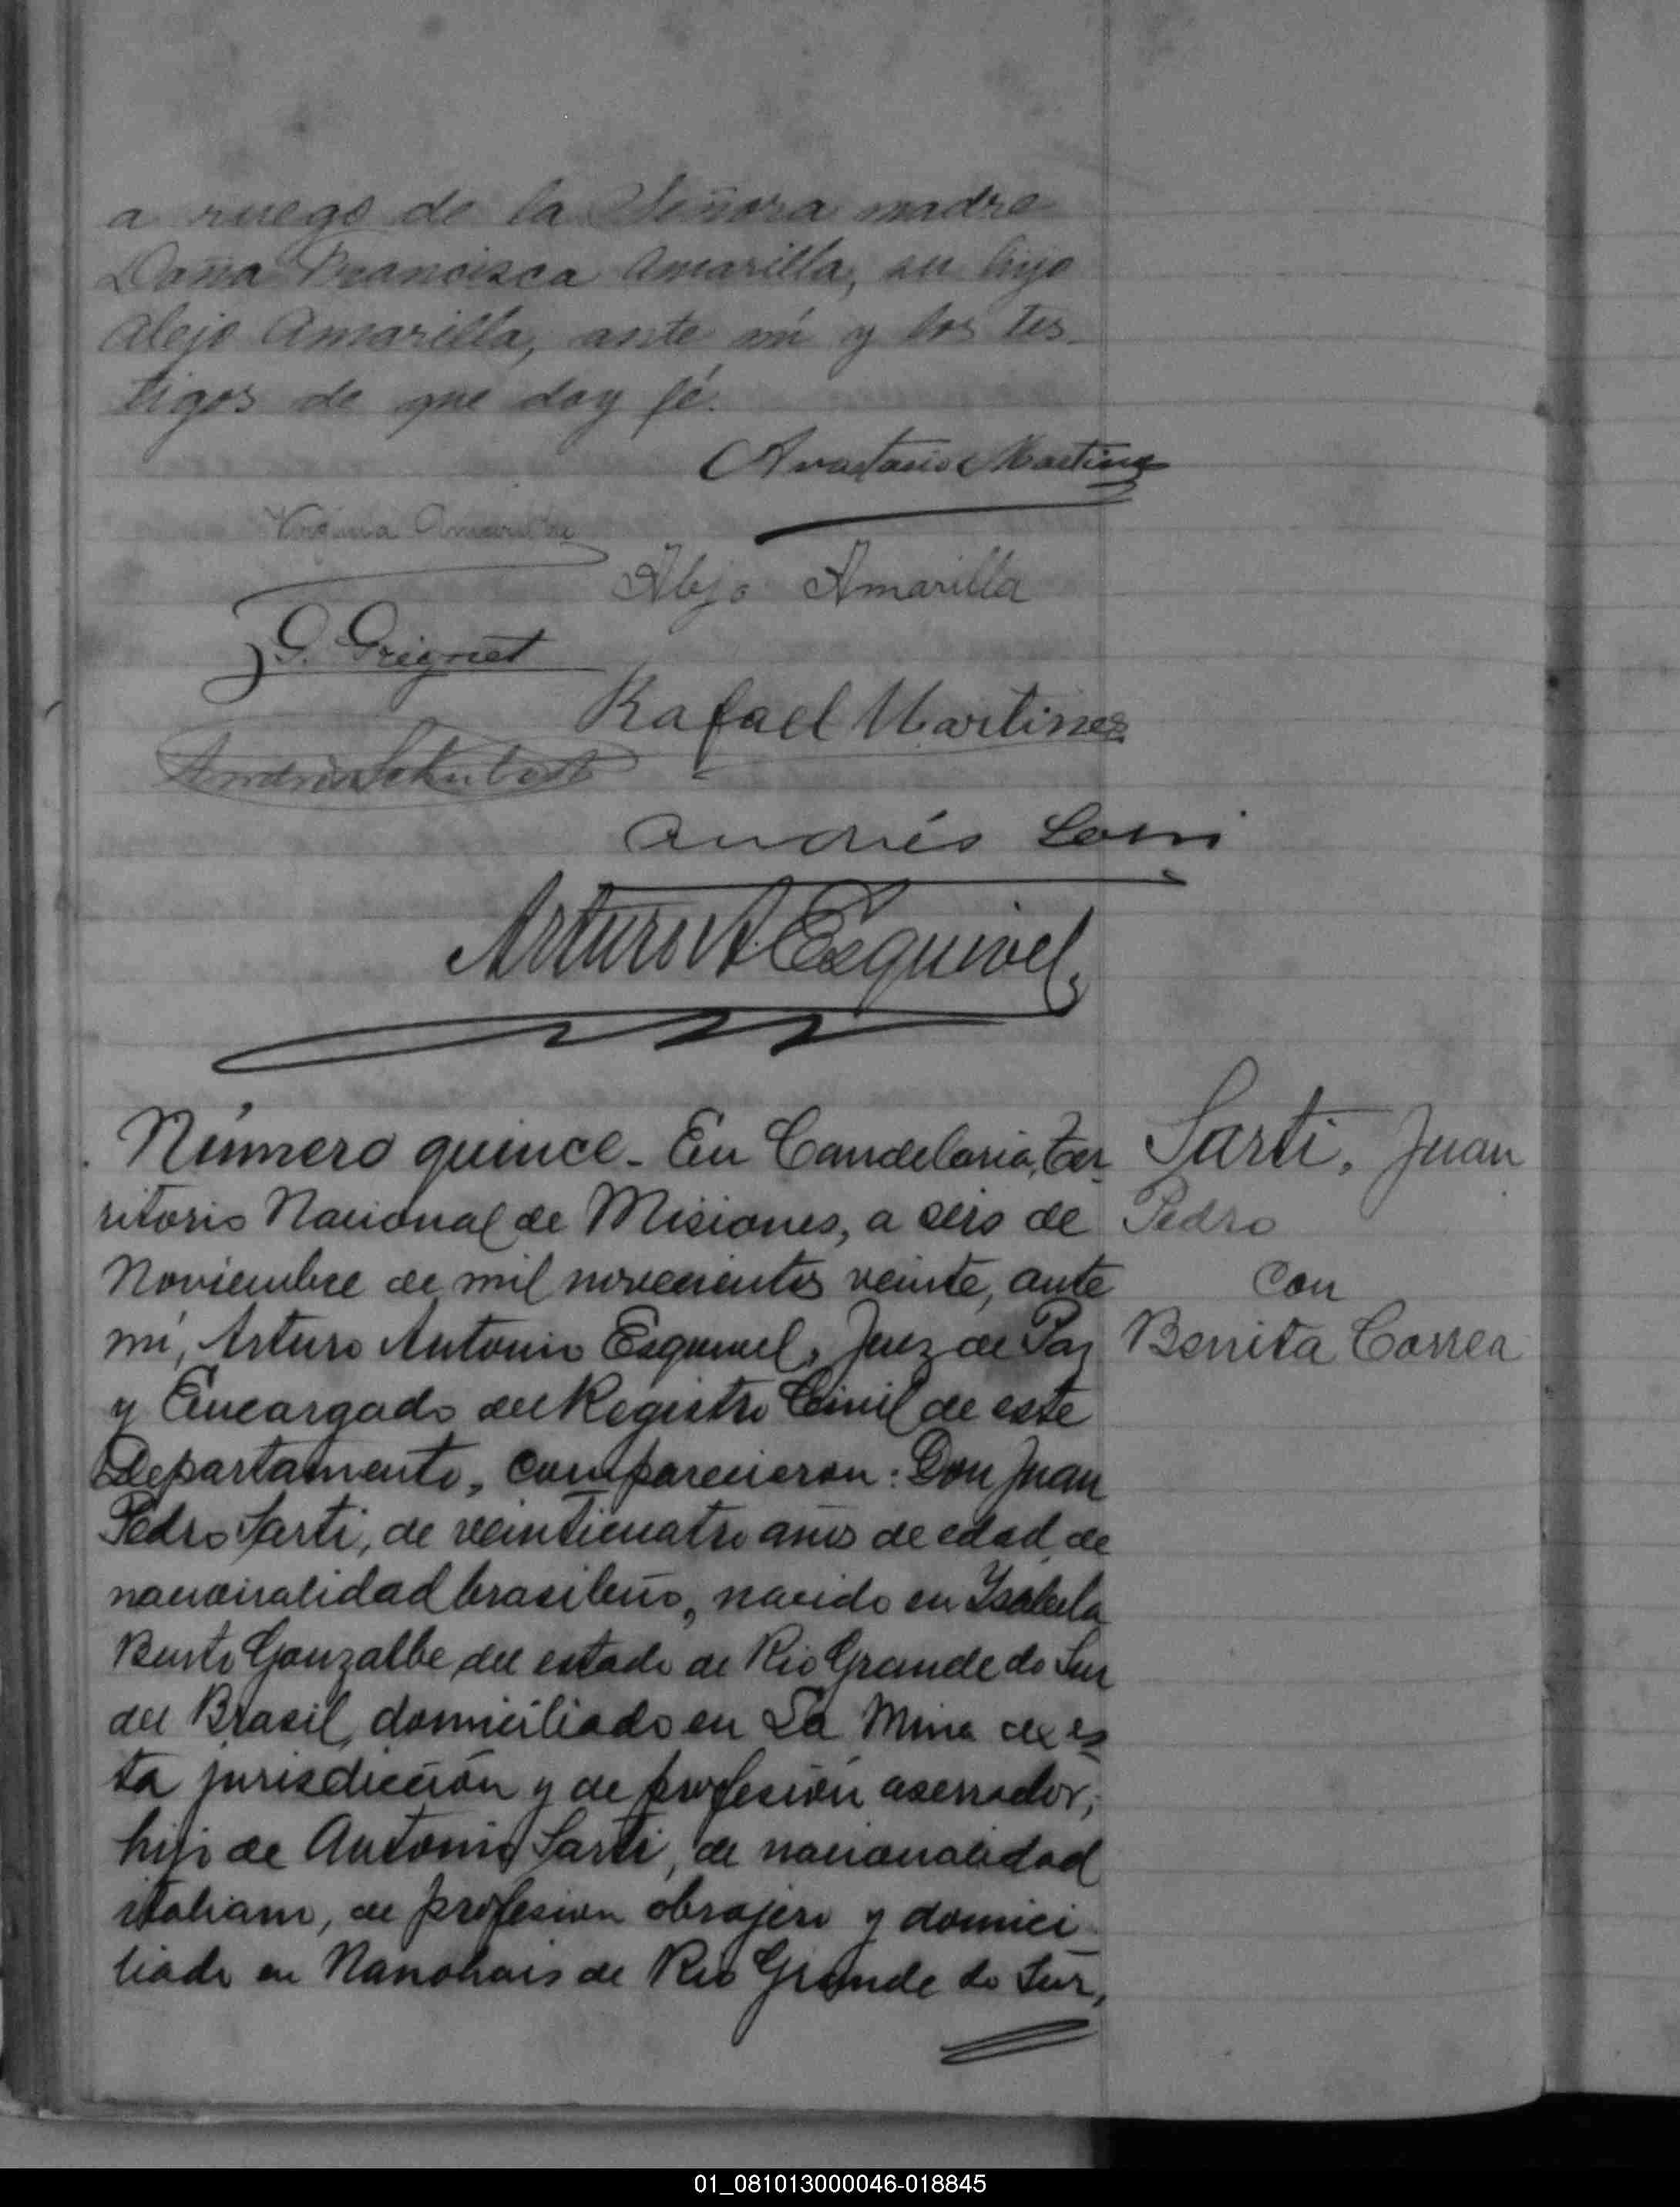 a ruego de la Señora madre
Doña Francisca Amarilla, su hijo
Alejo Amarilla, ante mí y los tes-
tigos de que doy fé.
Anastasio Martinez
Virginia Amarilla
Alejo Amarilla
G. Grignet
Rafael Martines
Schubert
Andrés
Arturo A Esquivel
Número quince - En Candelaria, Ter-
ritorio Nacional de Misiones, a seis de
Noviembre de mil novecientos veinte, ante
mí, Arturo Antonio Esquivel, Juez de Paz
y Encargado del Registro Civil de este
Departamento, comparecieron: Don Juan
Pedro Sarti, de veinticuatro años de edad, de
nacionalidad brasileño, nacido en Isabela
Gonzalbe del estado de Rio Grande do Sur
del Brasil, domiciliado en La Mina de es-
ta jurisdicción y de profesión aserrador;
hijo de Antonio Sarti, de nacionalidad
italiano, de profesion obrajero y domici-
liado en de Rio Grande do Sur,
Sarti, Juan
Pedro
con
Benita Correa
01_081013000046-018845